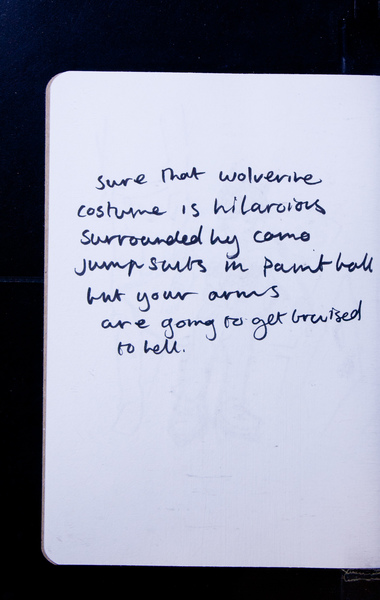 sure that wolverine
costume is hilarious
surrounded by camo
jumpsuits in paintball
but your arms
are going to get bruised
to hell.